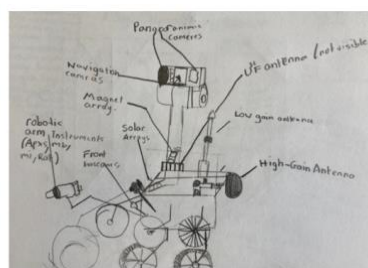 Panoramic
cameras
Navigation
cameras
UF antenna (not visible
Magnet
array
Low gain antenna
robotic
arm Instruments
Solar
Arrays
Front
High-Gain Antenna